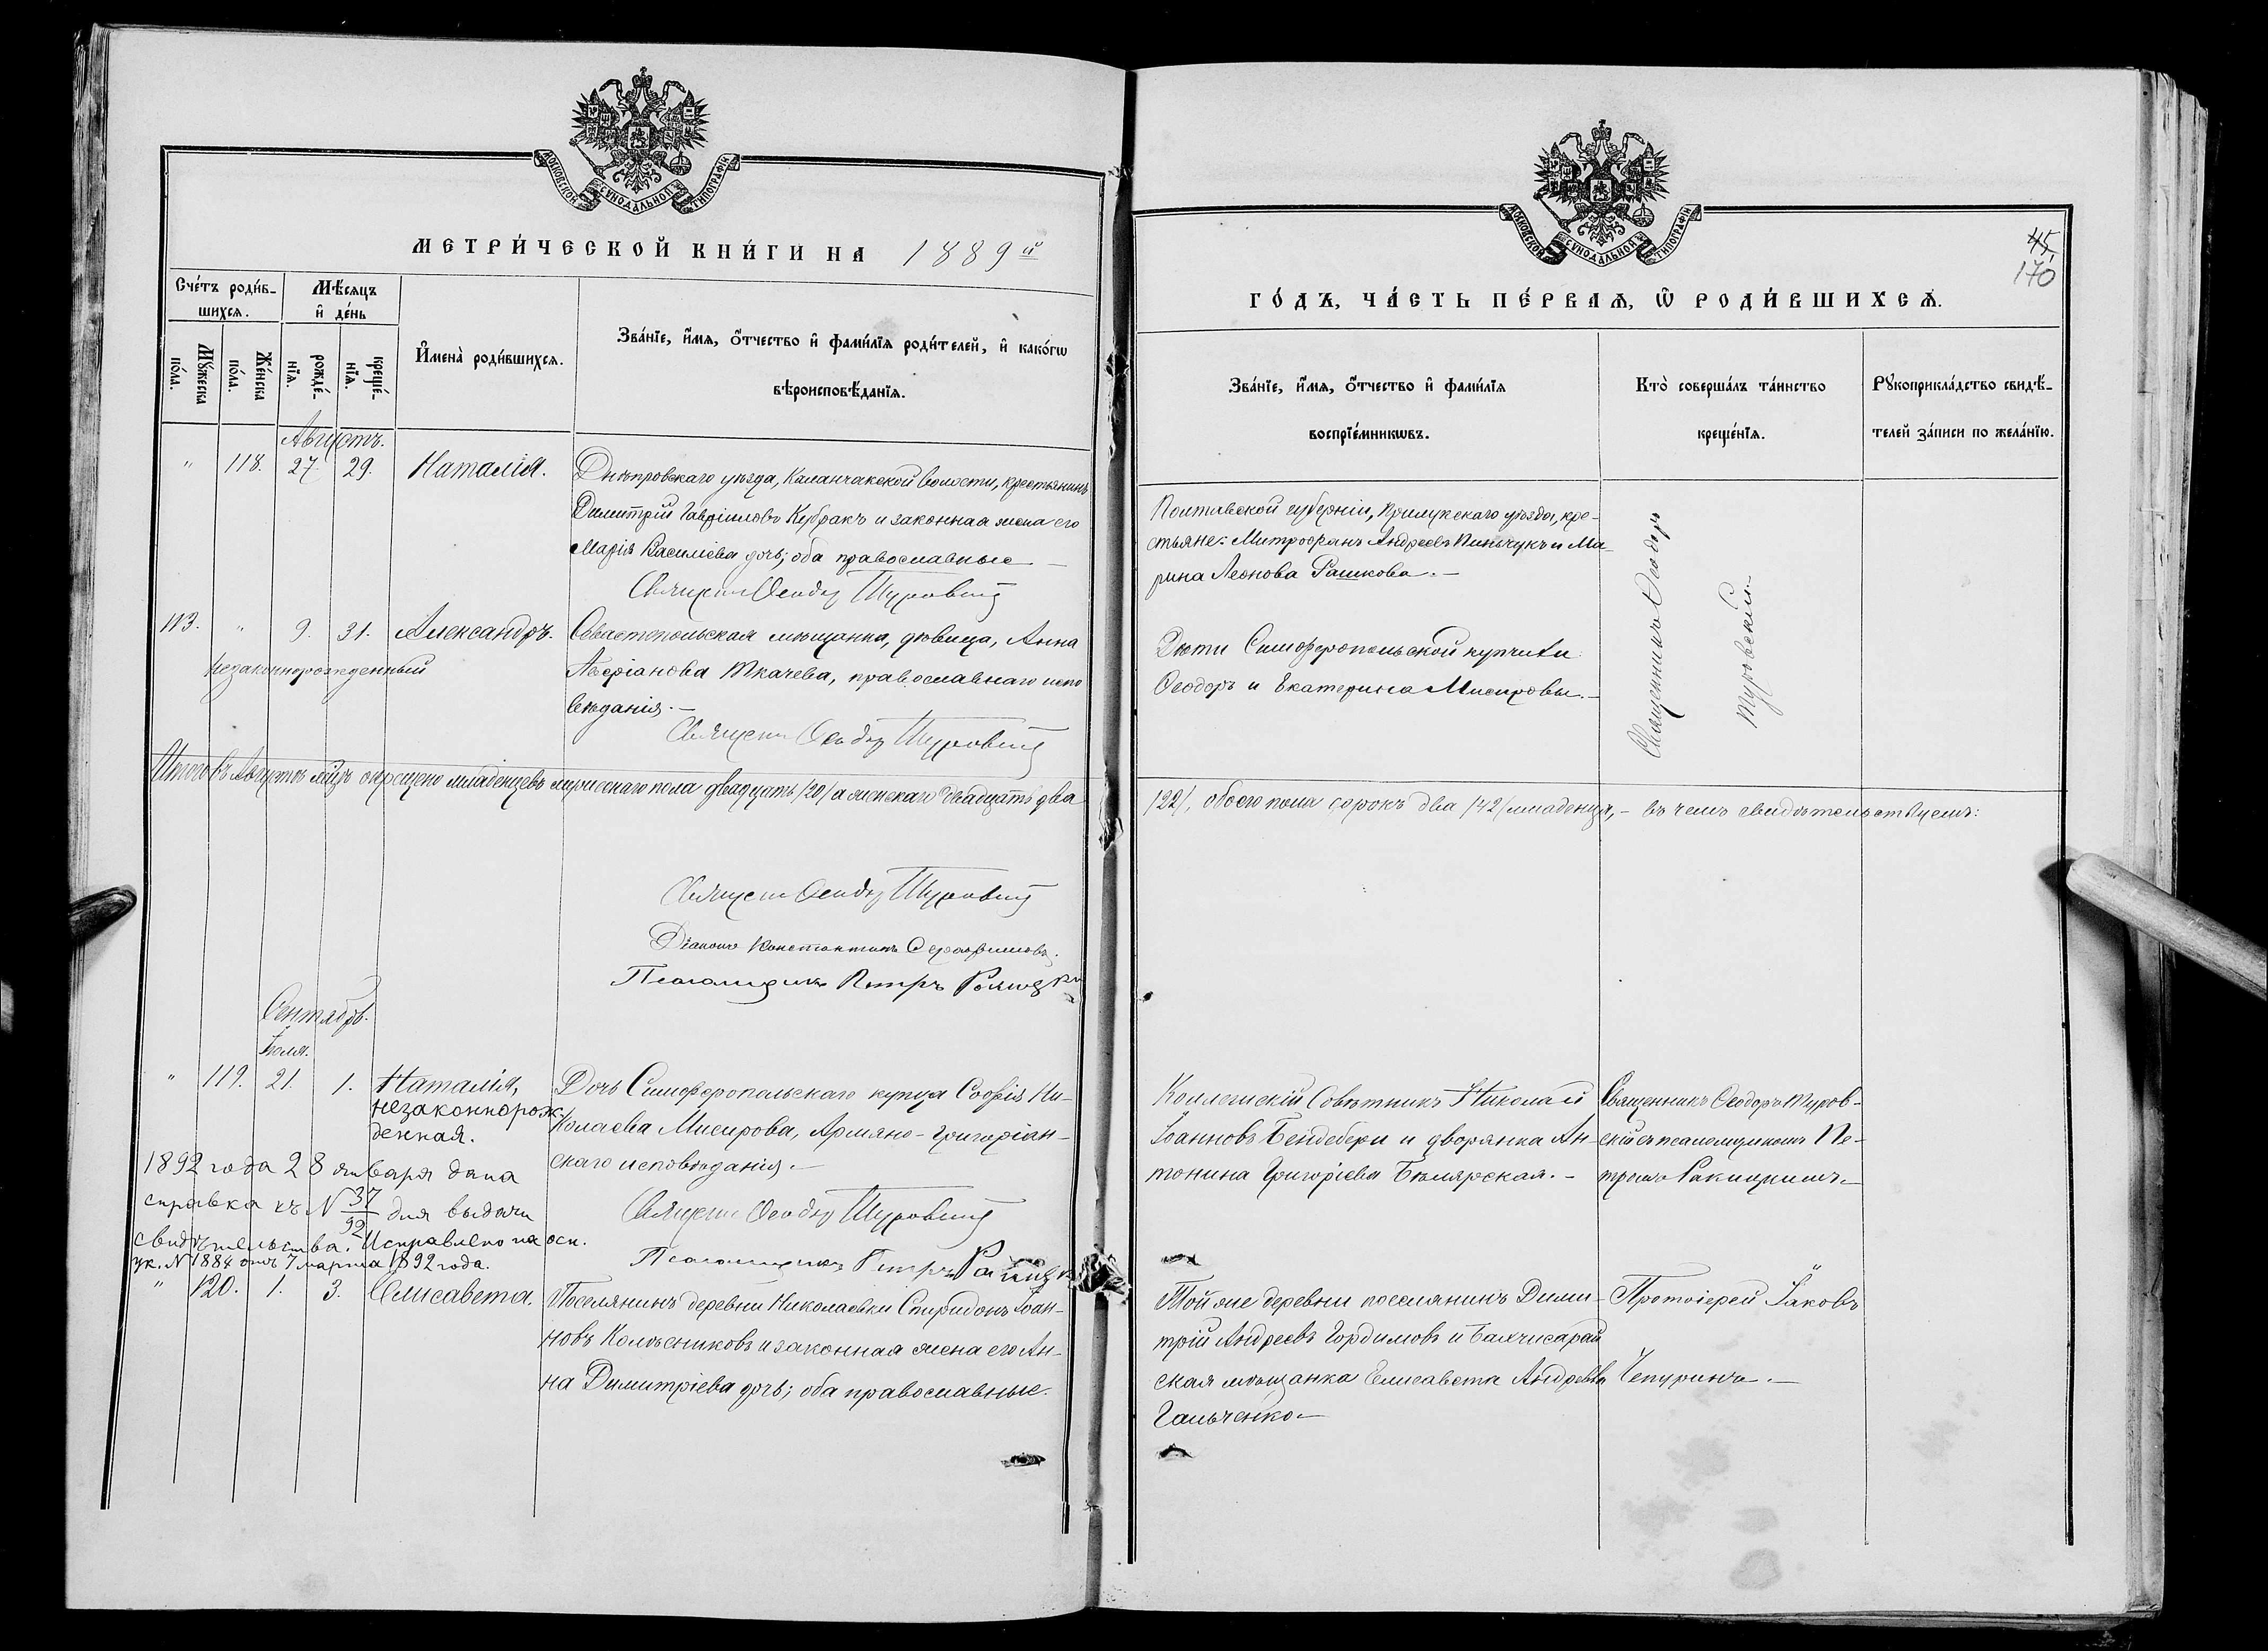 МЕТРИ́ЧЕСКОЙ КНИ́ГИ НА 1889й
Сче́тъ роди́в-
шихсѧ.
Мѣ́сѧцъ
и҆ де́нь
Мꙋ́жеска
по́ла.
Же́нска
по́ла.
рожде́-
нїѧ.
креще́-
нїѧ.
И҆мена̀ роди́вшихсѧ.
Зва́нїе, и҆́мѧ, ѻ҆́тчество и҆ фами́лїѧ роди́телей, и҆ како́гѡ
вѣроисповѣ́данїѧ.
Августъ.
" 118. 27. 29. Наталія.
Днѣпровскаго уѣзда, Каланчакской волости, крестьянинъ
Димитрій Гавріиловъ Кубракъ и законная жена его
Марія Василіева дочь; оба православные —
Священ. Ѳеодор Туровскій
113. " 9. 31. Александръ.
незаконнорожденный
Севастопольская мѣщанка, дѣвица, Анна
Ткачева, православнаго испо
вѣданія. —
Священ. Ѳеодор Туровскій
Итого въ Августѣ мѣсяцѣ окрещено младенцевъ мужескаго пола двадцать /20/ а женскаго двадцать два
Священ. Ѳеодор Туровскій
Діаконъ Константинъ Серафимовъ.
Псаломщикъ Петръ Ракицкій
Сентябрь.
Іюля.
" 119. 21. 1. Наталія,
незаконнорож-
денная.
Дочь Симферопольскаго купца Софія Ни-
колаева Мисирова, Армяно-Григоріан-
скаго исповѣданія. —
1892 года 28 января дана
справка къ N 37/92 для выдачи
свидѣтельства. Исправлено на осн.
ук. N 1884 отъ 7 марта 1892 года.
Священ. Ѳеодор Туровскій
Псаломщикъ Петръ Ракицкій
" 120. 1. 3. Елисавета.
Поселянинъ деревни Николаевки Спиридонъ Іоан-
новъ Колѣсниковъ и законная жена его Ан-
на Димитріева дочь; оба православные.
МОСКОВСКОЙ СѴНОДАЛЬНОЙ ТИПОГРАФІИ
45
170
ГО́ДЪ, ЧА́СТЬ ПЕ́РВАѦ, Ѡ҆ РОДИ́ВШИХСѦ.
Зва́нїе, и҆́мѧ, ѻ҆́тчество и҆ фами́лїѧ
воспрїе́мникѡвъ.
Кто̀ соверша́лъ та́инство
креще́нїѧ.
Рꙋкоприкла́дство свидѣ́-
телей за́писи по жела́нїю.
Полтавской губерніи, Прилукскаго уѣзда, кре-
стьяне: Митрофанъ Андреевъ Пиньчукъ и Ма-
рина Леонова Рашкова. —
Священникъ Ѳеодоръ
Туровскій
Дѣти Симферопольской купчихи
Ѳеодоръ и Екатерина Мисировы. —
/22/, обоего пола сорокъ два /42/ младенца, — въ чемъ свидѣтельствуемъ:
Коллежскій Совѣтникъ Николай
Іоанновъ Бендебери и дворянка Ан-
тонина Григоріева Бѣлярская. —
Священникъ Ѳеодоръ Туров-
скій съ псаломщикомъ Пе-
тромъ Ракицкимъ. —
Той же деревни поселянинъ Дими-
трій Андреевъ Гордимовъ и Бахчисарай
ская мѣщанка Елисавета Андреева
Гальченко —
Протоіерей Іаковъ
Чепуринъ. —